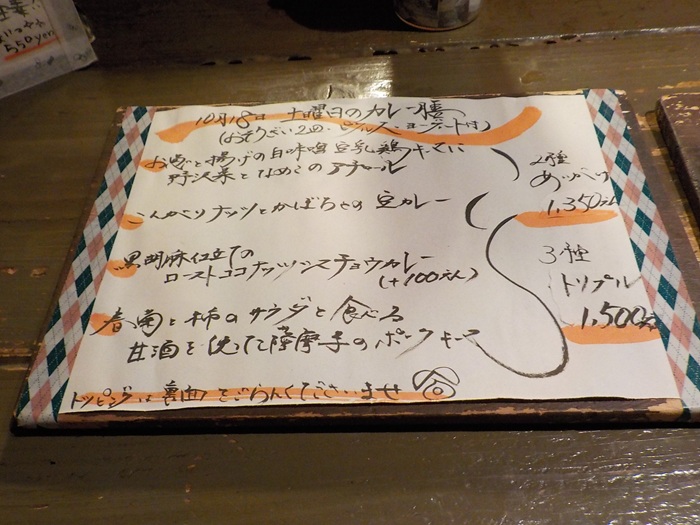 550yen
10月18日 土曜日のカレー膳
(おそうざい2品・ピクルス・ヨーグルト付)
お揚げの白味噌豆乳鶏キーマに
野沢菜となめこのアチャール
こんがりナッツとかぼちゃの豆カレー
黒胡麻仕立ての
ローストココナッツシスチョウカレー
(+100えん)
春菊と柿のサラダと食べる
甘酒を使った薩摩芋のポークキーマ
トッピングは裏面をごらんくださいませ
2種
あいがけ
1,350えん
3種
トリプル
1,500えん